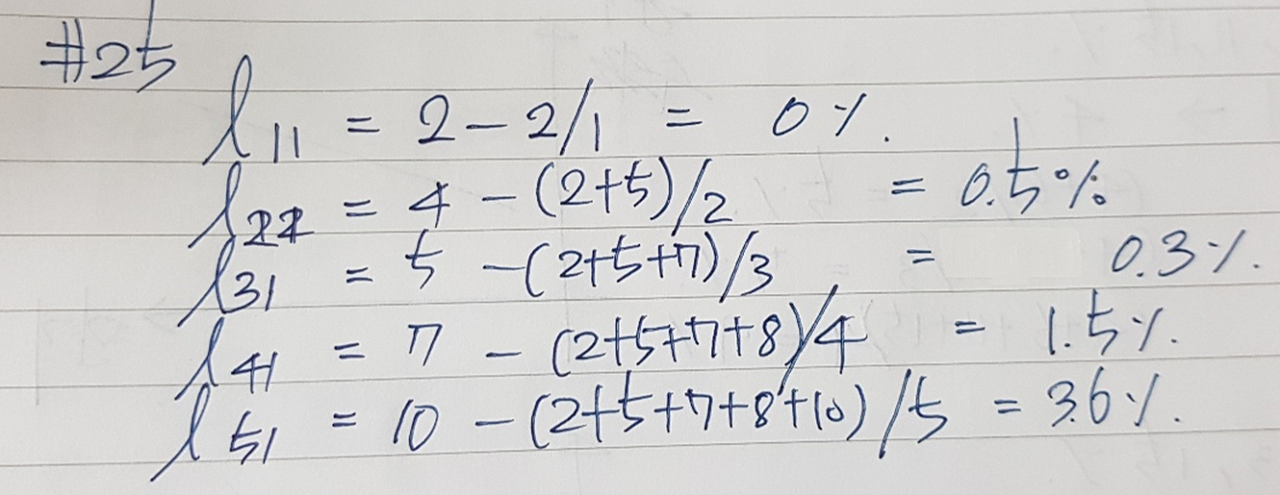 #25
l11 = 2 - 2/1 = 0%.
l22 = 4 - (2+5)/2 = 0.5%
l31 = 5 - (2+5+7)/3 = 0.3%.
l41 = 7 - (2+5+7+8)/4 = 1.5%.
l51 = 10 - (2+5+7+8+10)/5 = 3.6%.